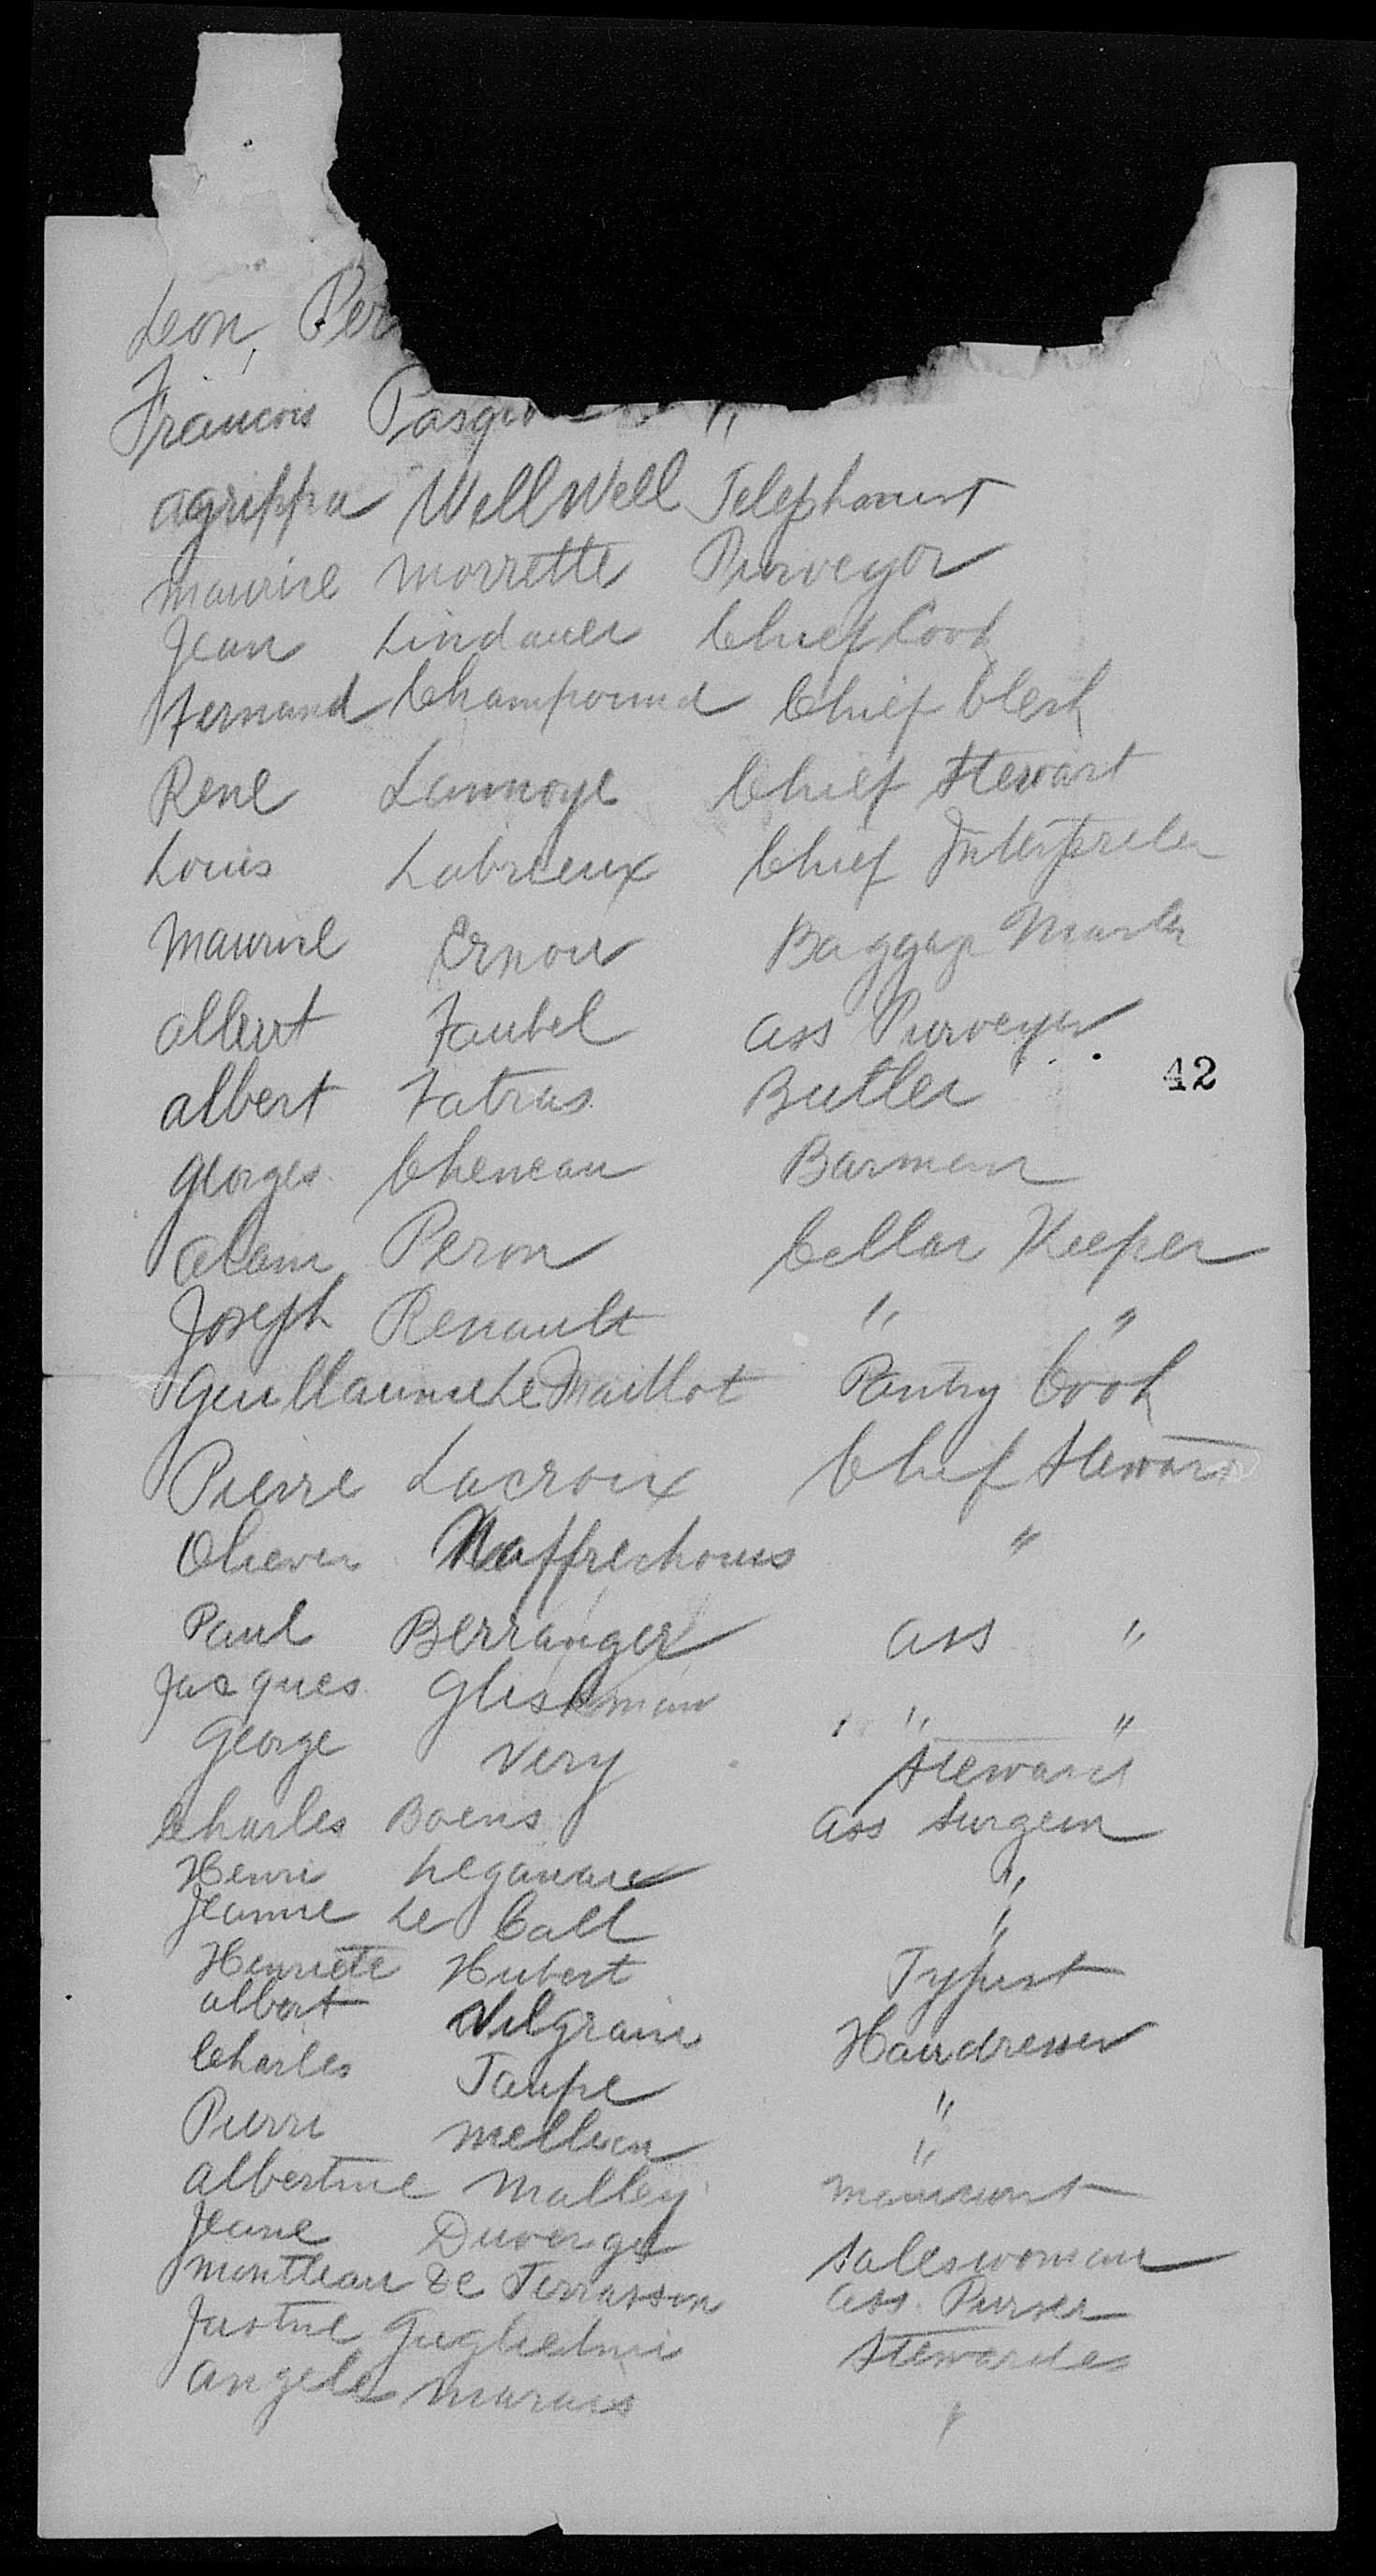 Leon, Per
Francois Pasqu "
agrippa WellWell Telephonist
Maurice Morrette Purveyor
Jean Lindauer Chief Cook
Fernand Champound Chief Clerk
Rene Lannoye Chief Stewart
Louis Labrieux Chief Interpreter
Maurice Ernou Baggage Master
Albert Faubel Ass Purveyor
Albert Fatras Butler
42
Georges Cheneau Barman
Alain Peron Cellar Keeper
Joseph Renault " "
Guillaume Le Maillot Pantry Cook
Pierre Lacroix Chief Steward
Oliever Naffrechoux "
Paul Berranger Ass "
Jacques Gliskman " "
George Very Steward
Charles Boens Ass Surgeon
Henri "
Jeanne Le Call "
Henriete Hubert Typist
Albert Vilgrain Hairdresser
Charles Taupe "
Pierre "
Albertine Malley Manicurist
Jeane Duverger Saleswoman
de Terrasson Ass. Purser
Justine Guglielmi Stewardes
Angele Marais "